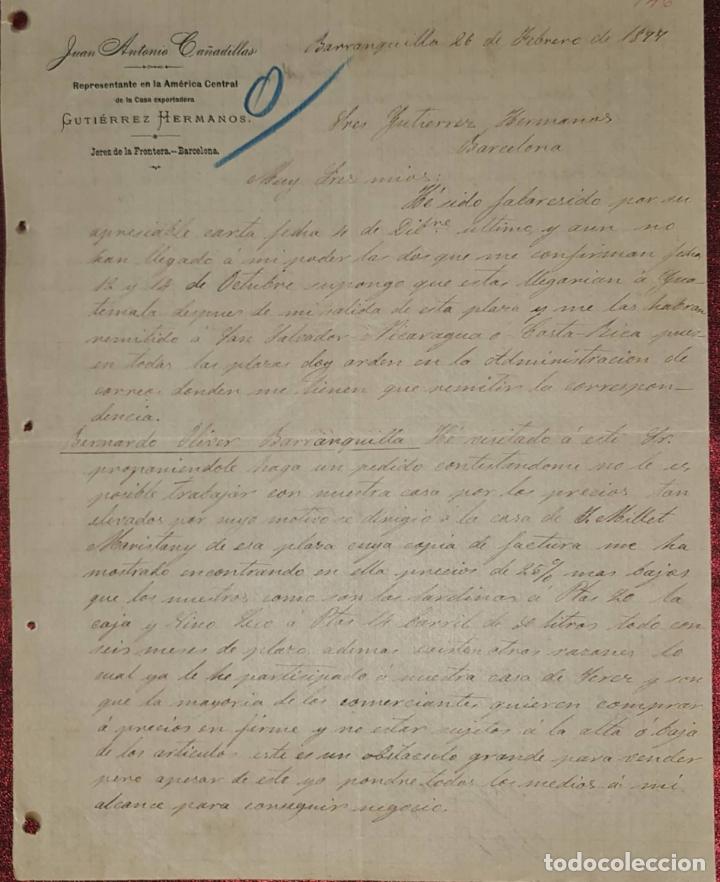 Juan Antonio Cañadillas
Representante en la América Central
de la Casa exportadora
GUTIÉRREZ HERMANOS.
Jerez de la Frontera.—Barcelona.
Barranquilla 26 de Febrero de 1897
Sres Gutierrez Hermanos
Barcelona
Muy Sres mios:
Hé sido faboresido por su
apresiable carta fecha 4 de Dibre último, y aun no
han llegado á mi poder las dos que me confirman fecha
12 y 14 de Octubre supongo que estas llegarian á Gua-
temala despues de mi salida de esta plaza y me las habran
remitido á San Salvador - Nicaragua o - Costa-Rica pues
en todas las plazas doy orden en la Administracion de
correos donden me tienen que remitir la correspon-
dencia.
Bernardo Oliver Barranquilla Hé visitado á este Sr.
proponiendole haga un pedido contestándome no le es
posible trabajar con nuestra casa por los precios tan
elevados por cuyo motivo se dirigio á la casa de Millet
Maristany de esa plaza cuya copia de factura me ha
mostrado encontrando en ella precios de 25% mas bajos
que los nuestros como son las sardinas á Ptas 20 la
caja y Vino Seco á Ptas 14 barril de litros todo con
seis meses de plazo ademas existen otras razones lo
cual ya le he participado á nuestra casa de Jerez y son
que la mayoria de los comerciantes quieren comprar
á precios en firme y no estar sujetos á la alta ó baja
de los articulos este es un obstaculo grande para vender
pero apesar de este yo pondre todos los medios á mi
alcance para conseguir negocio.
todocoleccion.net